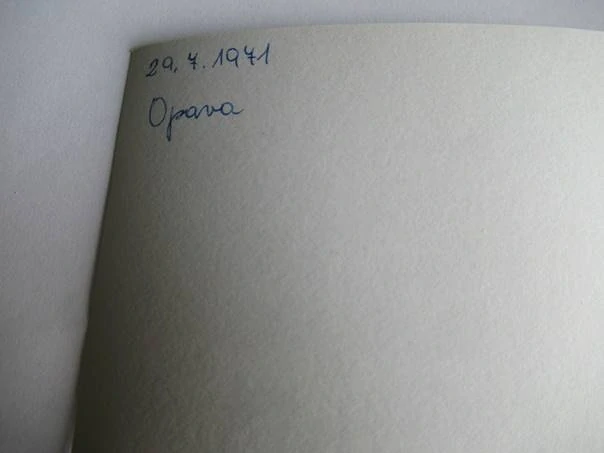 29.7.1971
Opava